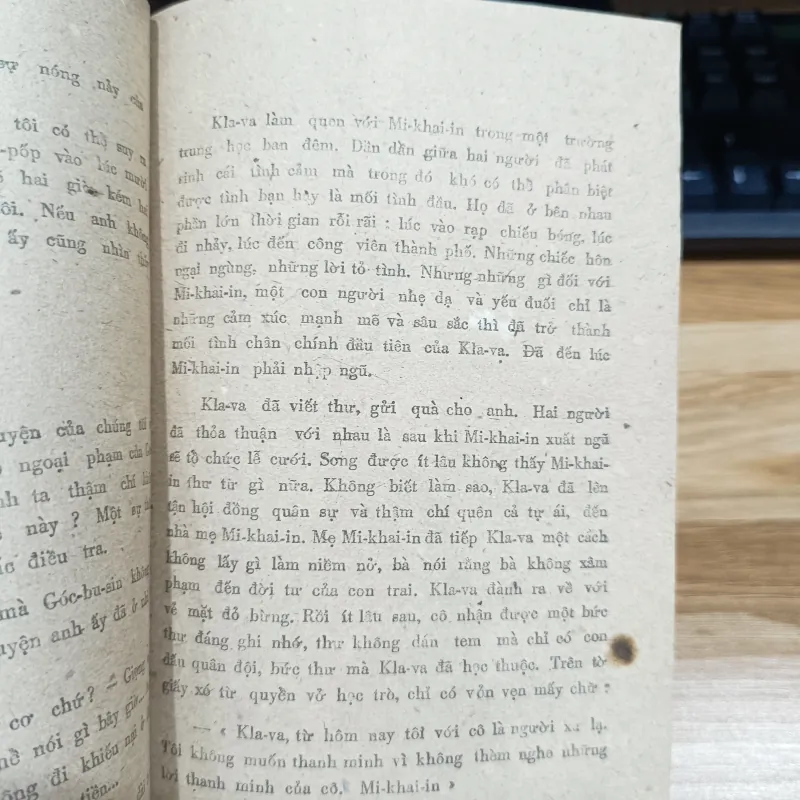 sự nóng nảy của
tôi có thể suy
-pốp vào lúc mười
hai giờ kém hai
ôi. Nếu anh không
ấy cũng nhìn
uyện của chúng tôi
ngoại phạm của
nh ta thậm chí
này ? Một sự
điều tra.
mà Góc-bu-sin không
uyện anh ấy đã ở
cơ chứ? — Giọng
nói gì bây giờ...
ông đi khiếu nại
tiền...
Kla-va làm quen với Mi-khai-in trong một trường
trung học ban đêm. Dần dần giữa hai người đã phát
sinh cái tình cảm mà trong đó khó có thể phân biệt
được tình bạn hay là mối tình đầu. Họ đã ở bên nhau
phần lớn thời gian rỗi rãi : lúc vào rạp chiếu bóng, lúc
đi nhảy, lúc đến công viên thành phố. Những chiếc hôn
ngại ngùng, những lời tỏ tình. Nhưng những gì đối với
Mi-khai-in, một con người nhẹ dạ và yếu đuối chỉ là
những cảm xúc mạnh mẽ và sâu sắc thì đã trở thành
mối tình chân chính đầu tiên của Kla-va. Đã đến lúc
Mi-khai-in phải nhập ngũ.
Kla-va đã viết thư, gửi quà cho anh. Hai người
đã thỏa thuận với nhau là sau khi Mi-khai-in xuất ngũ
sẽ tổ chức lễ cưới. Song được ít lâu không thấy Mi-khai-
in thư từ gì nữa. Không biết làm sao, Kla-va đã lên
tận hội đồng quân sự và thậm chí quên cả tự ái, đến
nhà mẹ Mi-khai-in. Mẹ Mi-khai-in đã tiếp Kla-va một cách
không lấy gì làm niềm nở, bà nói rằng bà không xâm
phạm đến đời tư của con trai. Kla-va đành ra về với
vẻ mặt đỏ bừng. Rồi ít lâu sau, cô nhận được một bức
thư đáng ghi nhớ, thư không dán tem mà chỉ có con
dấu quân đội, bức thư mà Kla-va đã học thuộc. Trên tờ
giấy xé từ quyển vở học trò, chỉ có vỏn vẹn mấy chữ :
— « Kla-va, từ hôm nay tôi với cô là người xa lạ.
Tôi không muốn thanh minh vì không thèm nghe những
lời thanh minh của cô. Mi-khai-in »